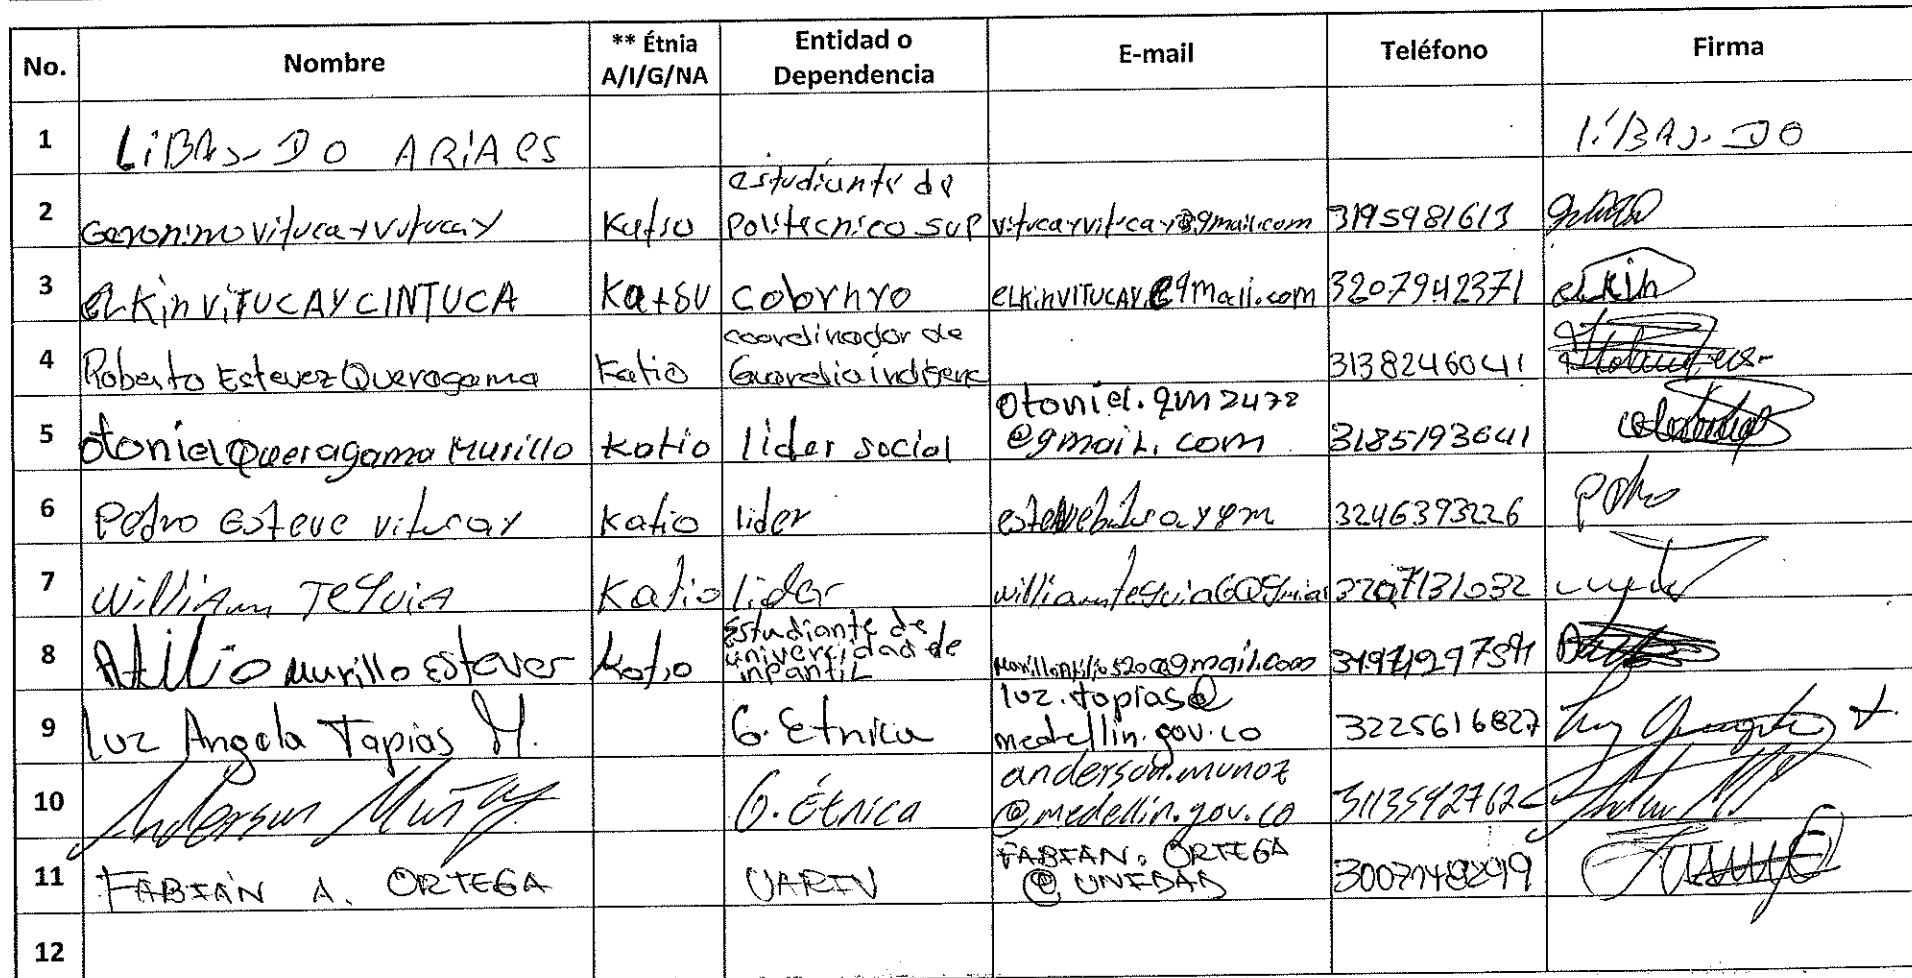 No. Nombre ** Étnia A/I/G/NA Entidad o Dependencia E-mail Teléfono Firma
1 LiBAr-DO ARiAes LiBAr-DO
2 Geronimo vitucay vitucay Katio estudiante de Politecnico sup vitucayvitucay@gmail.com 3195981613
3 eLKin ViTUCAY CINTUCA Katsu cobyrhro eLkinVITUCAY.@gmail.com 3207942371 eLkin
4 Roberto Estevez Queragama Katio coordinador de Guardia indigena 3138246041
5 Otoniel Queragama Murillo Katio lider social otoniel.qm2472 @gmaiL.com 3185193641
6 Pedro Esteve vitucay Katio lider 3246393226 Pedro
7 William Tequia Katio lider williamtequia6@gmai 3207131032
8 Atilio Murillo Estever Katio Estudiante de universidad de inpantiL murilloatilio520@gmail.com
9 luz Angela Tapias M. G. Etnica luz.tapias@ medellin.gov.co 3225616827
10 Anderson Muñoz G. Étnica anderson.munoz @medellin.gov.co 3113592762
11 FABIAN A. ORTEGA UARIV FABIAN. ORTEGA @ UNIDAD
12